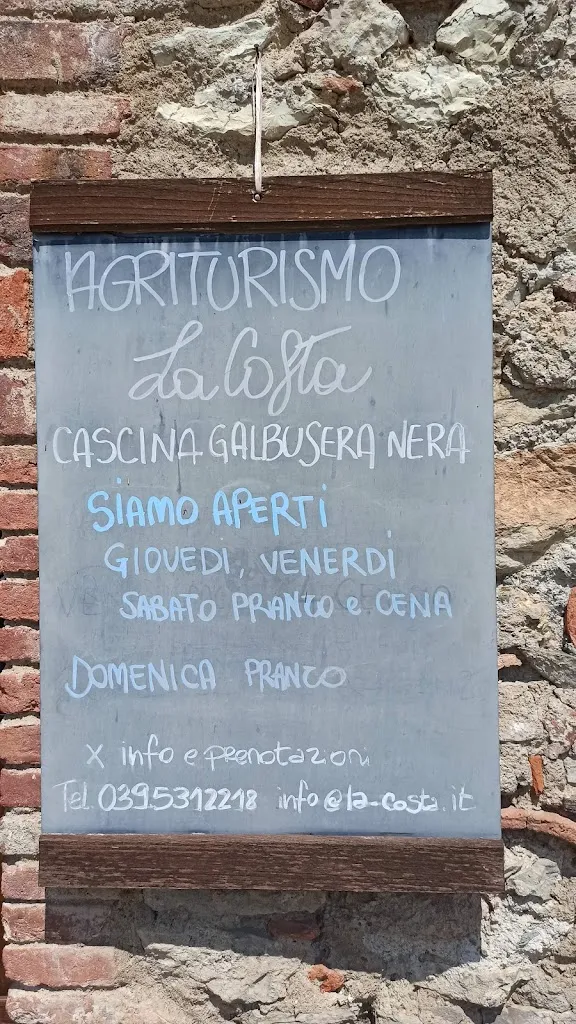 AGRITURISMO
La Costa
CASCINA GALBUSERA NERA
SIAMO APERTI
GIOVEDI, VENERDI
SABATO PRANZO e CENA
DOMENICA PRANZO
X info e prenotazioni
Tel. 039.5312218 info@la-costa.it